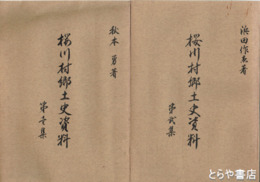 浜田作兵衛著
桜川村郷土史資料
第弐集
秋本勇著
桜川村郷土史資料
第壱集
とらや書店